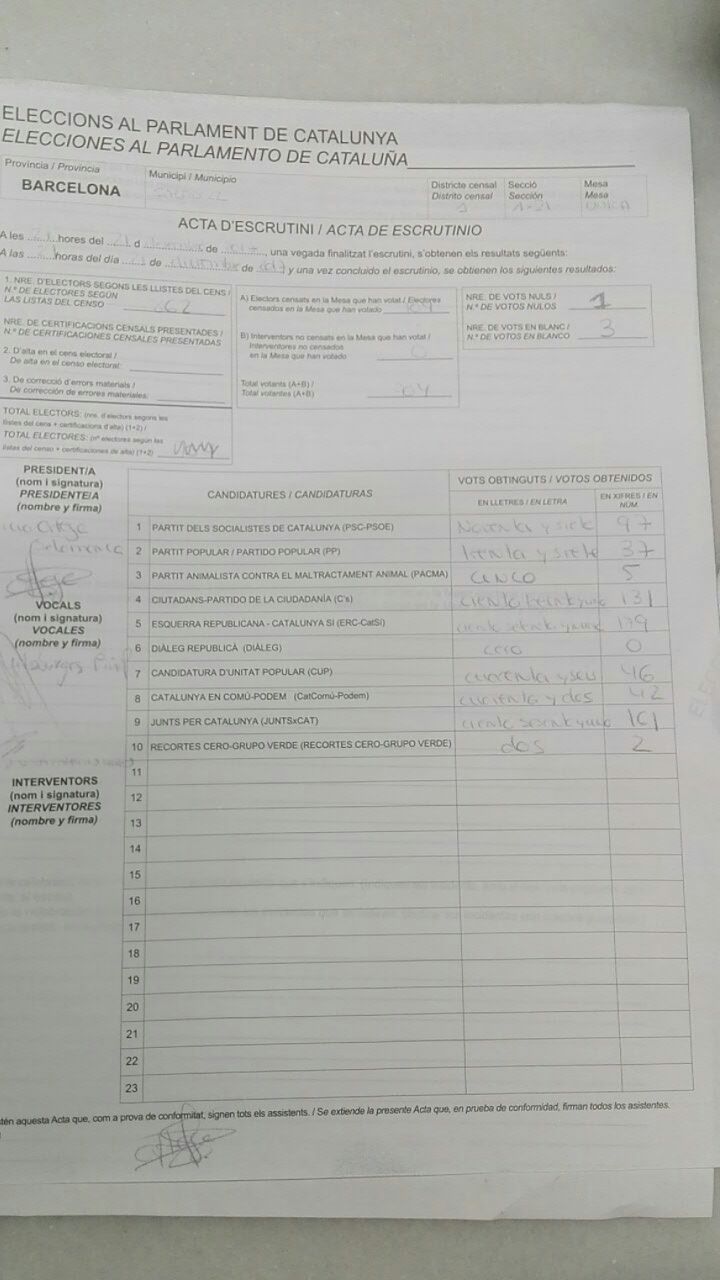 ELECCIONS AL PARLAMENT DE CATALUNYA
ELECCIONES AL PARLAMENTO DE CATALUÑA
Província / Provincia
BARCELONA
Municipi / Municipio
Districte censal
Distrito censal
1
Secció
Sección
Mesa
Mesa
UNICA
ACTA D'ESCRUTINI / ACTA DE ESCRUTINIO
A les hores del d de , una vegada finalitzat l'escrutini, s'obtenen els resultats següents:
A las horas del día de diciembre de 2017 y una vez concluido el escrutinio, se obtienen los siguientes resultados:
1. NRE. D'ELECTORS SEGONS LES LLISTES DEL CENS /
N.º DE ELECTORES SEGÚN
LAS LISTAS DEL CENSO
NRE. DE CERTIFICACIONS CENSALS PRESENTADES /
N.º DE CERTIFICACIONES CENSALES PRESENTADAS
2. D'alta en el cens electoral /
De alta en el censo electoral:
3. De correcció d'errors materials /
De corrección de errores materiales:
TOTAL ELECTORS: (nre. d'electors segons les
llistes del cens + certificacions d'alta) (1+2) /
TOTAL ELECTORES: (nº electores según las
listas del censo + certificaciones de alta) (1+2)
A) Electors censats en la Mesa que han votat / Electores
censados en la Mesa que han votado
B) Interventors no censats en la Mesa que han votat /
Interventores no censados
en la Mesa que han votado
0
Total votants (A+B) /
Total votantes (A+B)
NRE. DE VOTS NULS /
N.º DE VOTOS NULOS
1
NRE. DE VOTS EN BLANC /
N.º DE VOTOS EN BLANCO
3
PRESIDENT/A
(nom i signatura)
PRESIDENTE/A
(nombre y firma)
VOCALS
(nom i signatura)
VOCALES
(nombre y firma)
INTERVENTORS
(nom i signatura)
INTERVENTORES
(nombre y firma)
CANDIDATURES / CANDIDATURAS
VOTS OBTINGUTS / VOTOS OBTENIDOS
EN LLETRES / EN LETRA
EN XIFRES / EN NÚM.
1 PARTIT DELS SOCIALISTES DE CATALUNYA (PSC-PSOE) Noventa y siete 97
2 PARTIT POPULAR / PARTIDO POPULAR (PP) treinta y siete 37
3 PARTIT ANIMALISTA CONTRA EL MALTRACTAMENT ANIMAL (PACMA) CINCO 5
4 CIUTADANS-PARTIDO DE LA CIUDADANÍA (C's) 131
5 ESQUERRA REPUBLICANA - CATALUNYA SÍ (ERC-CatSí) 179
6 DIÀLEG REPUBLICÀ (DIÀLEG) cero 0
7 CANDIDATURA D'UNITAT POPULAR (CUP) cuarenta y seis 46
8 CATALUNYA EN COMÚ-PODEM (CatComú-Podem) 42
9 JUNTS PER CATALUNYA (JUNTSxCAT) 161
10 RECORTES CERO-GRUPO VERDE (RECORTES CERO-GRUPO VERDE) dos 2
11
12
13
14
15
16
17
18
19
20
21
22
23
aquesta Acta que, com a prova de conformitat, signen tots els assistents. / Se extiende la presente Acta que, en prueba de conformidad, firman todos los asistentes.